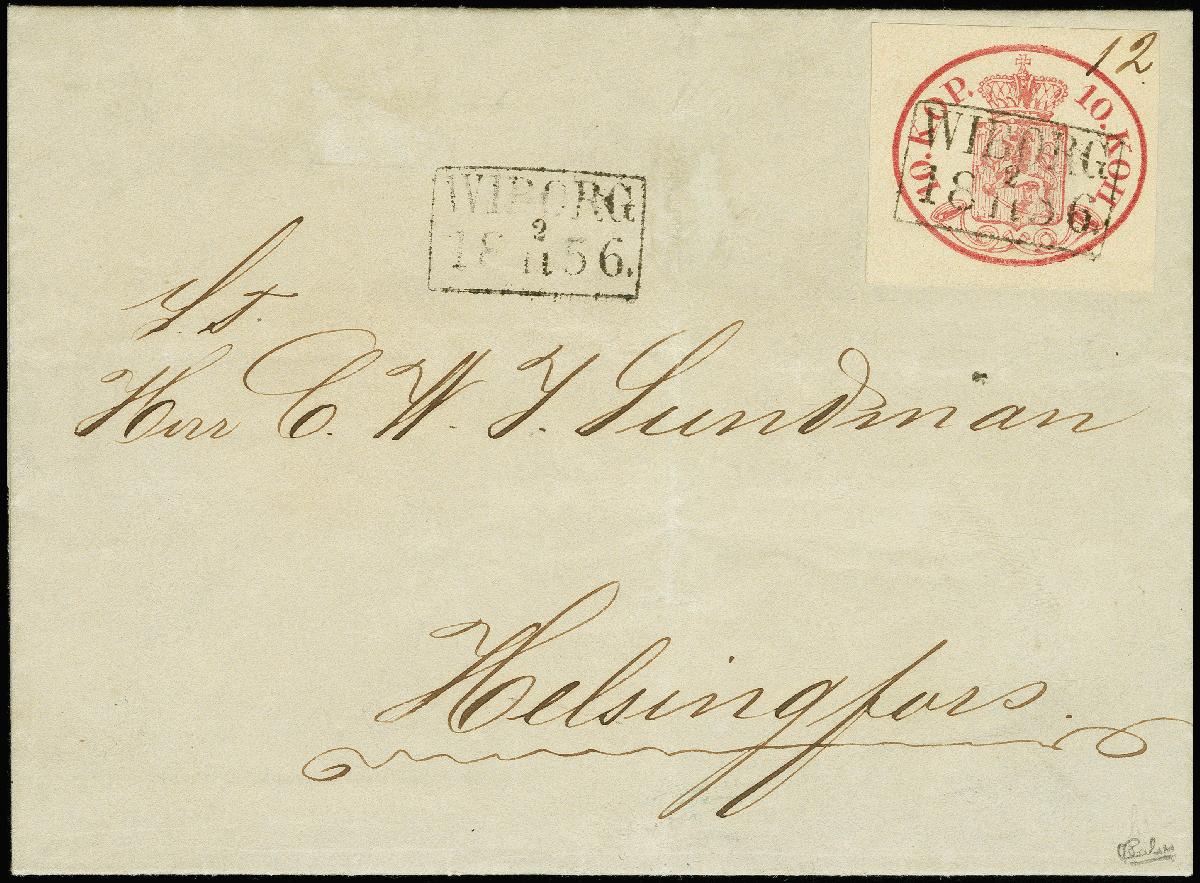 12.
10.KOP. 10.КОП.
WIBORG
2
18 11 56.
WIBORG
2
18 11 56.
S.T.
Herr C. W. J. Sundman
Helsingfors.